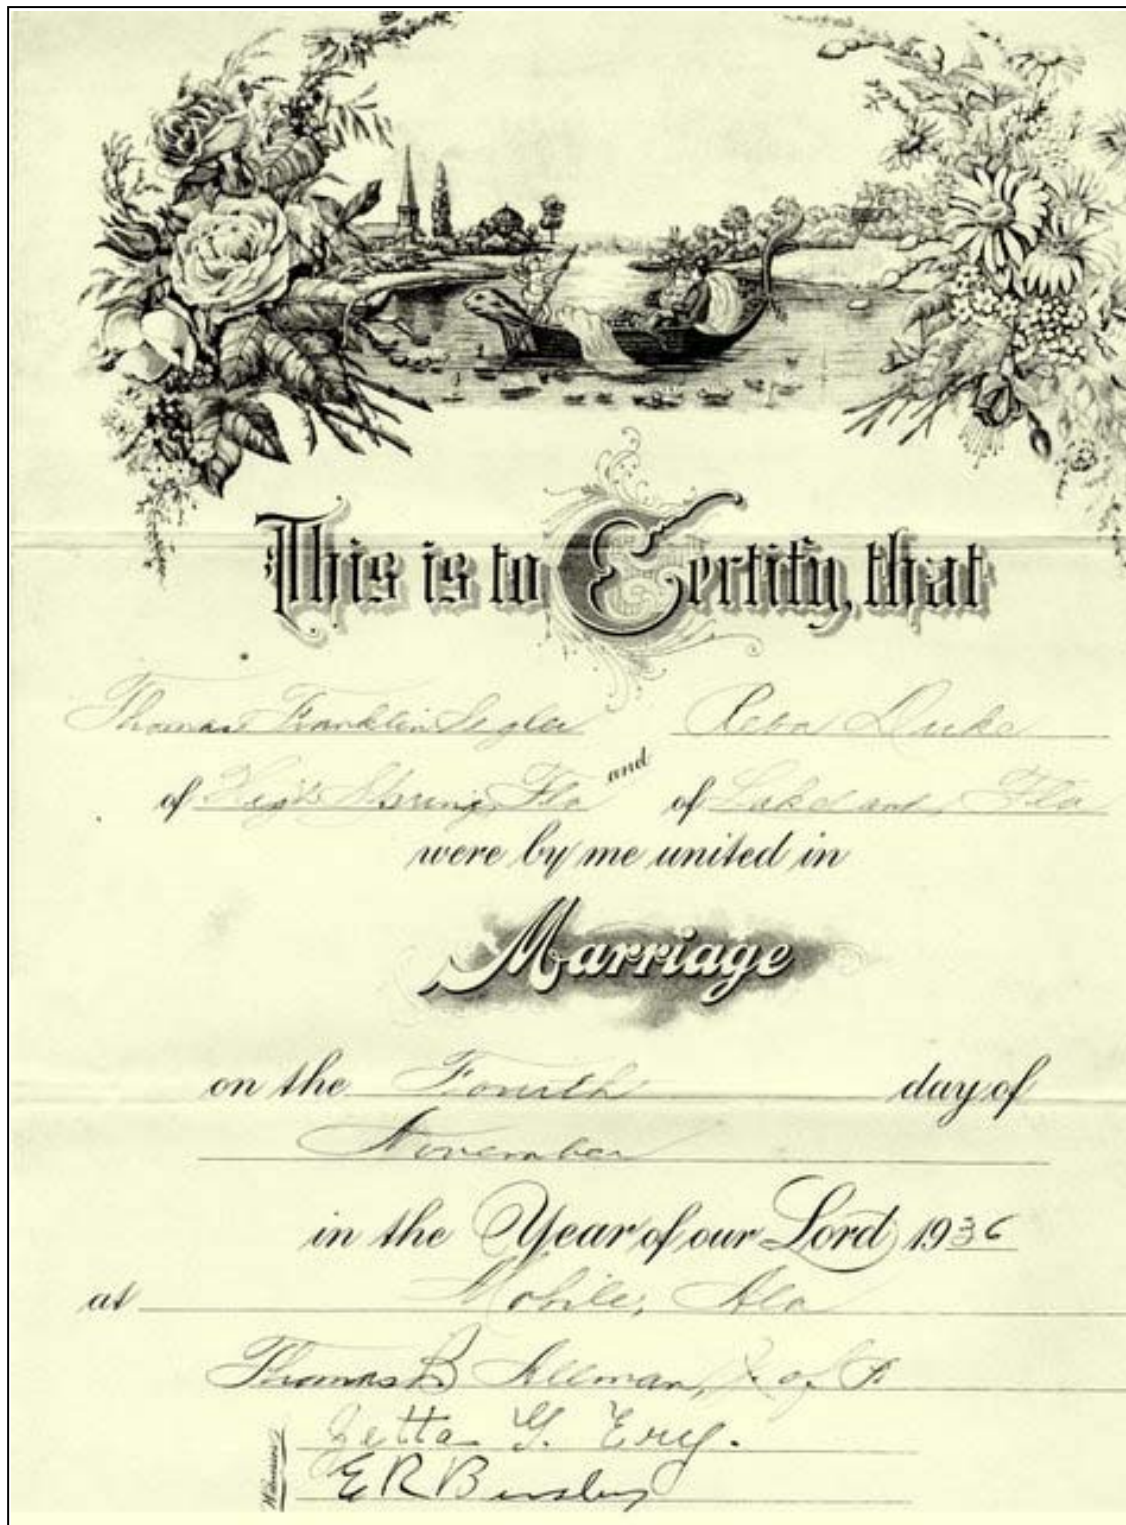 This is to Certify, that
Thomas Franklin Segler Reba Duke
and
of High Spring, Fla of Lakeland, Fla
were by me united in
Marriage
on the Fourth day of
November
in the Year of our Lord 1936
at Mobile, Ala
Thomas B Allman, J of P
Witnesses
Jetta G. Ery.
E R B